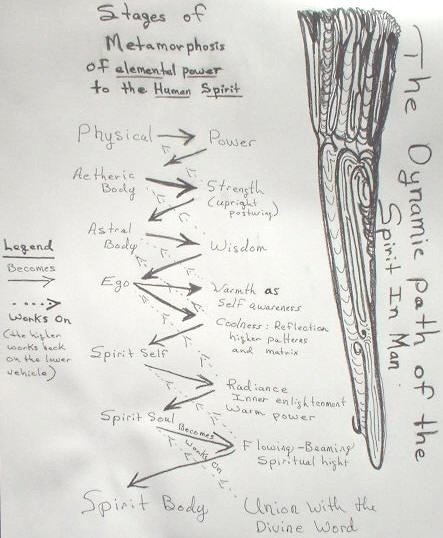 Stages of
Metamorphosis
of elemental power
to the Human Spirit
The Dynamic path of the
Spirit In Man
Physical
Power
Aetheric
Body
Strength
(upright
posturing)
Astral
Body
Wisdom
Legend
Becomes
Works On
(the higher
works back
on the lower
vehicle)
Ego
Warmth as
Self awareness
Coolness: Reflection
higher patterns
and matrix
Spirit Self
Radiance
Inner enlightenment
Warm power
Spirit Soul
Becomes
Works On
Flowing-Beaming
Spiritual hight
Spirit Body
Union with the
Divine Word